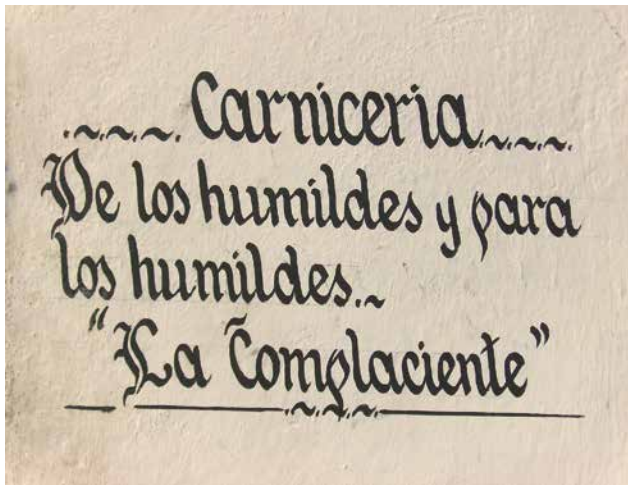 Carniceria
De los humildes y para
los humildes..
"La Complaciente"